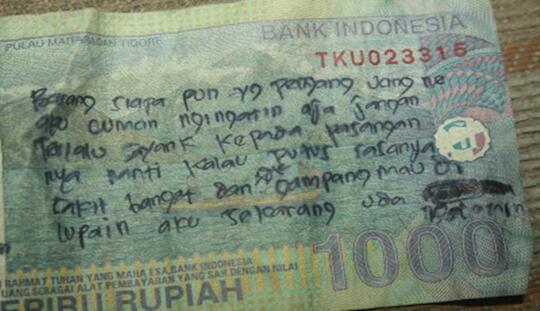 BANK INDONESIA
PULAU MAITARA DAN TIDORE
TKU023315
Barang siapa pun yg pegang uang ne
aku cuman ngingatin aja jangan
terlalu sayank kepada pasangan
nya nanti kalau putus rasanya
sakit banget dan gampang mau di
lupain aku sekarang uda
1000
RAHMAT TUHAN YANG MAHA ESA, BANK INDONESIA
UANG SEBAGAI ALAT PEMBAYARAN YANG SAH DENGAN NILAI
SERIBU RUPIAH